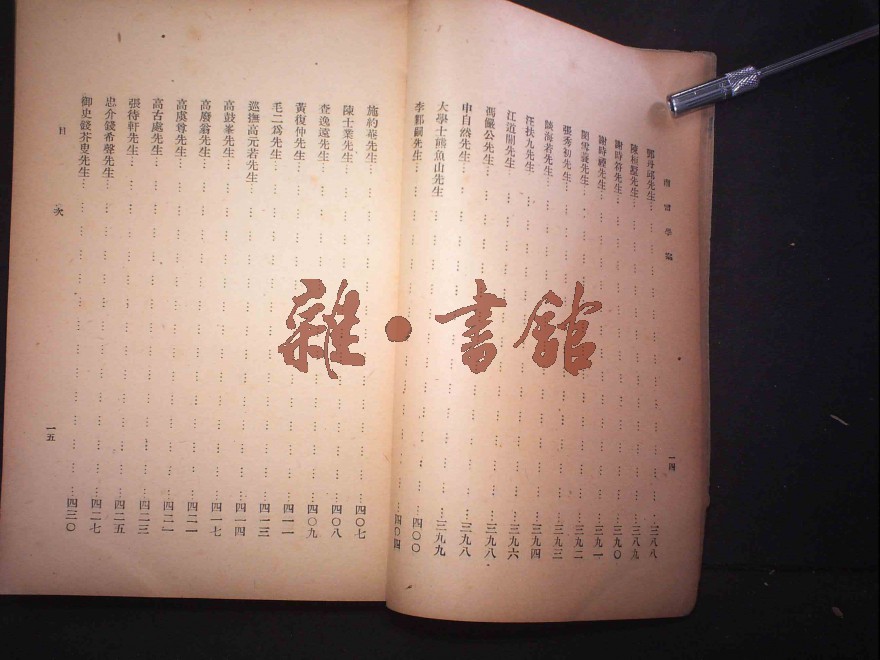 南雷學案
鄭丹邱先生……三八八
陳桓墅先生……三八九
謝時符先生……三九〇
謝時禋先生……三九一
閻雪蓑先生……三九二
張秀初先生……三九三
談海若先生……三九四
汪扶九先生……三九四
江道闇先生……三九六
馮儼公先生……三九八
申自然先生……三九八
大學士熊魚山先生……三九九
李鄴嗣先生……四〇〇
……四〇四
一四
施約菴先生……四〇七
陳士業先生……四〇八
查逸遠先生……四〇九
黃復仲先生……四一一
毛二為先生……四一三
巡撫高元若先生……四一四
高鼓峯先生……四一七
高廢翁先生……四二一
高虞尊先生……四二一
高古處先生……四二三
張待軒先生……四二五
忠介錢希聲先生……四二七
御史錢芥叟先生……四三〇
目次
一五
雜·書館